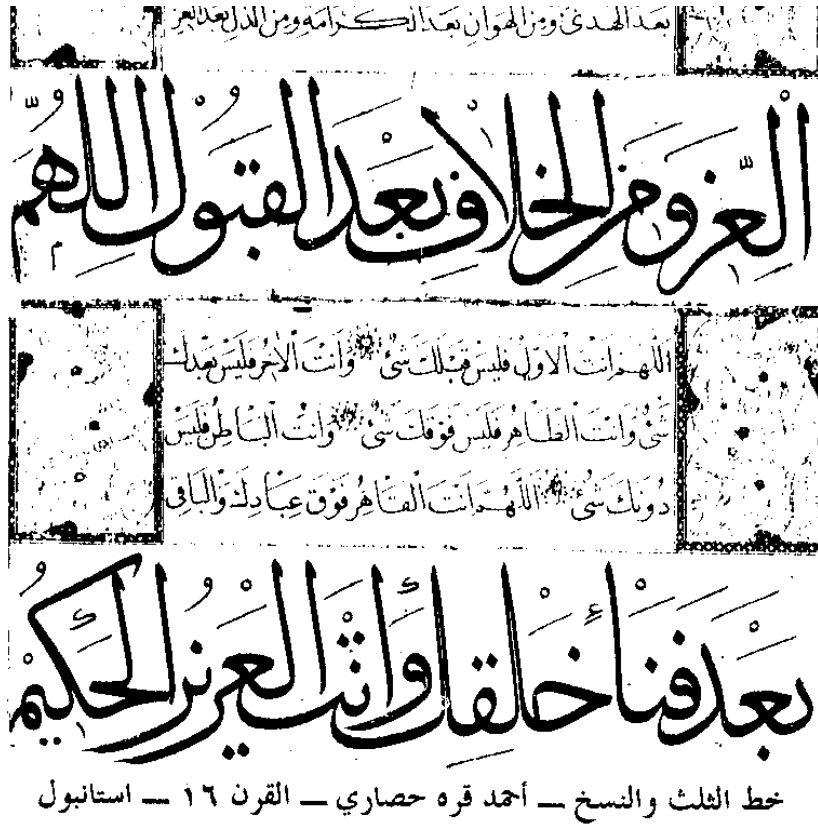 بعد الهدى ومن الهوان بعد الكرامة ومن الذل بعد العز
العز ومن الخلاف بعد القبول اللهم
اللهم انت الاول فليس قبلك شئ وانت الاخر فليس بعدك
شئ وانت الظاهر فليس فوقك شئ وانت الباطن فليس
دونك شئ اللهم انت القاهر فوق عبادك والباقي
بعد فناء خلقك وانت العزيز الحكيم
خط الثلث والنسخ — أحمد قره حصاري — القرن ١٦ — استانبول